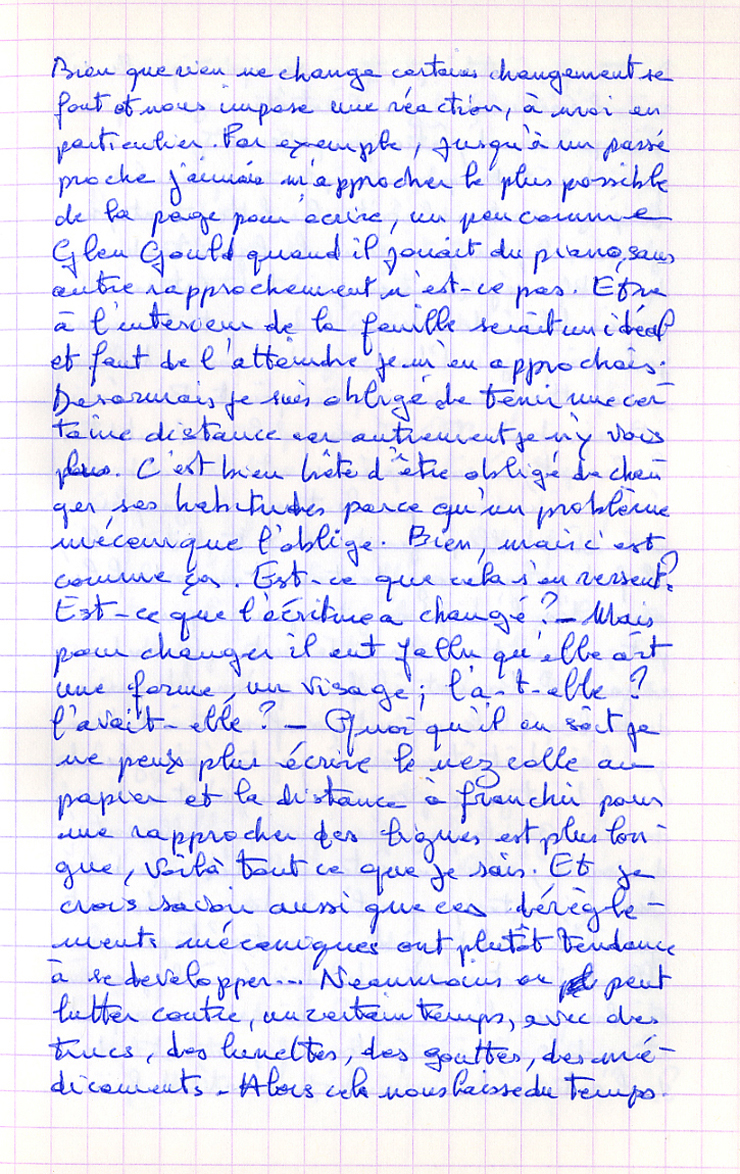 Bien que rien ne change certains changement se
font et nous impose une réaction, à moi en
particulier. Par exemple, jusqu'à un passé
proche j'aimais m'approcher le plus possible
de la page pour écrire, un peu comme
Glen Gould quand il jouait du piano, sans
autre rapprochement n'est-ce pas. Etre
à l'interieur de la feuille serait un idéal
et faut de l'atteindre je m'en approchais.
Desormais je suis obligé de tenir une cer-
taine distance car autrement je n'y vois
plus. C'est bien bête d'être obligé de chan
ger ses habitudes parce qu'un problème
mécanique l'oblige. Bien, mais c'est
comme ça. Est-ce que cela s'en ressent?
Est-ce que l'écriture a changé? - Mais
pour changer il eut fallu qu'elle ait
une forme, un visage; l'a-t-elle?
l'avait-elle? - Quoi qu'il en soit je
ne peux plus écrire le nez colle au
papier et la distance à franchir pour
me rapprocher des lignes est plus lon-
gue, voilà tout ce que je sais. Et je
crois savoir aussi que ces dérègle-
ments mécaniques ont plutôt tendance
à se developper... Neanmoins on peut
lutter contre, un certain temps, avec des
trucs, des lunettes, des gouttes, des mé-
dicaments - Alors cela nous laisse du temps.